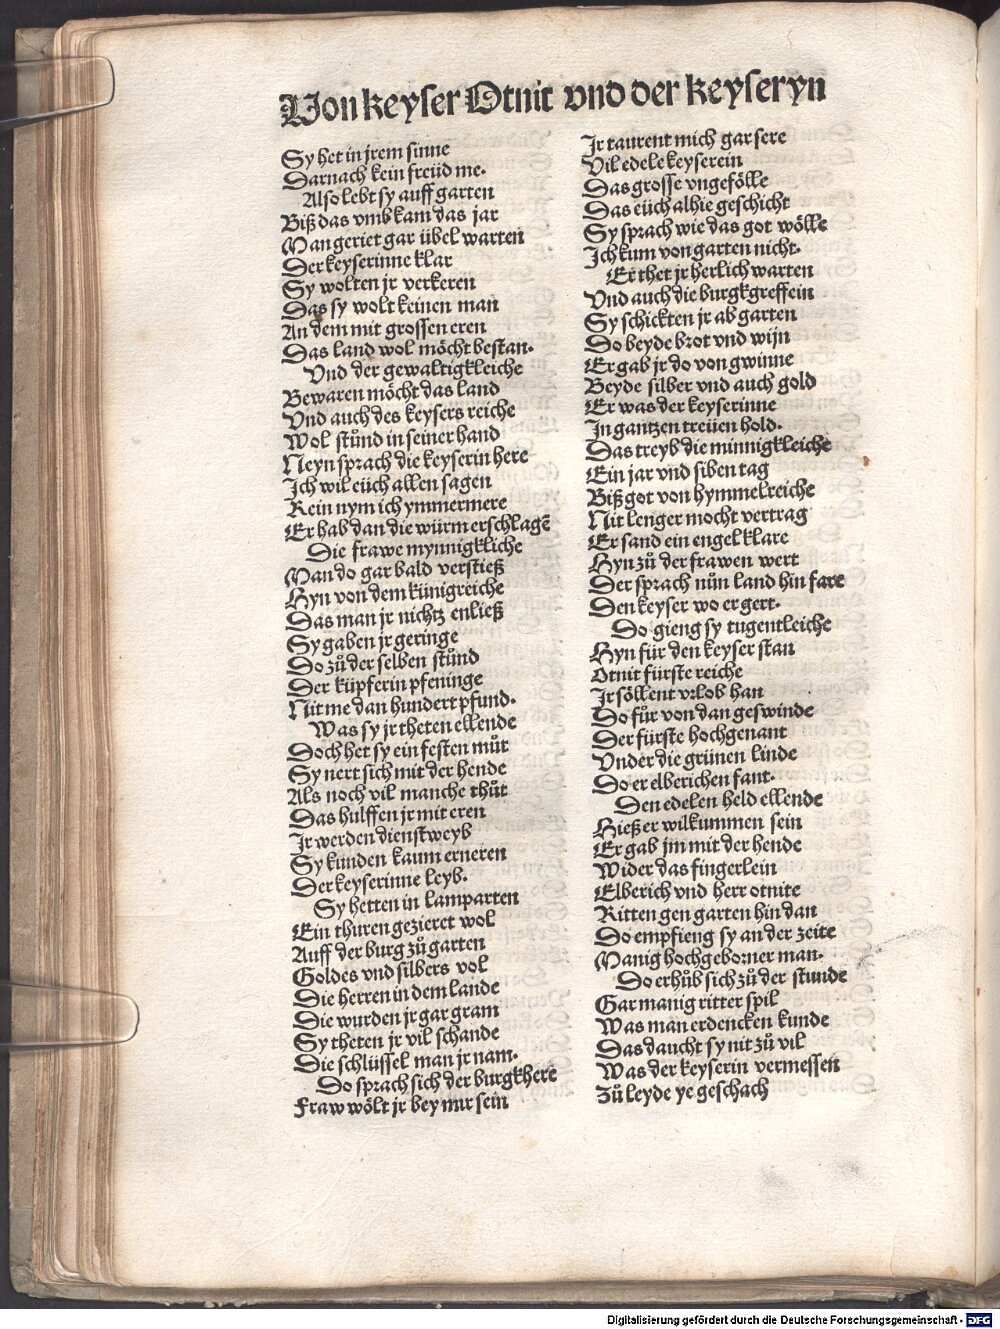 Von keyser Otnit vnd der keyseryn
Sy het in jrem sinne
Darnach kein freüd me.
Also lebt sy auff garten
Biß das vmb kam das jar
Man geriet gar übel warten
Der keyserinne klar
Sy wolten jr verkeren
Das sy wolt keinen man
An dem mit grossen eren
Das land wol möcht bestan.
Vnd der gewaltigkleiche
Bewaren möcht das land
Vnd auch des keysers reiche
Wol stůnd in seiner hand
Neyn sprach die keyserin here
Ich wil eüch allen sagen
Kein nym ich ymmermere
Er hab dan die würm erschlagē
Die frawe mynnigkliche
Man do gar bald verstieß
Hyn von dem künigreiche
Das man jr nichtz enließ
Sy gaben jr geringe
Do zů der selben stůnd
Der küpferin pfeninge
Nit me dan hundert pfund.
Was sy jr theten ellende
Doch het sy ein festen můt
Sy nert sich mit der hende
Als noch vil manche thůt
Das hulffen jr mit eren
Ir werden dienstweyb
Sy kunden kaum erneren
Der keyserinne leyb.
Sy hetten in lamparten
Ein thuren gezieret wol
Auff der burg zů garten
Goldes vnd silbers vol
Die herren in dem lande
Die wurden jr gar gram
Sy theten jr vil schande
Die schlüssel man jr nam.
Do sprach sich der burgkhere
Fraw wölt jr bey mir sein
Ir taurent mich gar sere
Vil edele keyserein
Das grosse vngefölle
Das eüch alhie geschicht
Sy sprach wie das got wölle
Ich kum von garten nicht.
Er thet jr herlich warten
Vnd auch die burgkgreffein
Sy schickten jr ab garten
Do beyde brot vnd wijn
Er gab jr do von gwinne
Beyde silber vnd auch gold
Er was der keyserinne
In gantzen treüen hold.
Das treyb die minnigkleiche
Ein jar vnd siben tag
Biß got von hymmelreiche
Nit lenger mocht vertrag
Er sand ein engel klare
Hyn zů der frawen wert
Der sprach nůn land hin fare
Den keyser wo er gert.
Do gieng sy tugentleiche
Hyn für den keyser stan
Otnit fürste reiche
Ir söllent vrlob han
Do fůr von dan geswinde
Der fürste hochgenant
Vnder die grünen linde
Do er elberichen fant.
Den edelen held ellende
Hieß er wilkummen sein
Er gab jm mit der hende
Wider das fingerlein
Elberich vnd herr otnite
Ritten gen garten hin dan
Do empfieng sy an der zeite
Manig hochgeborner man.
Do erhůb sich zů der stunde
Gar manig ritter spil
Was man erdencken kunde
Das daucht sy nit zů vil
Was der keyserin vermessen
Zů leyde ye geschach
Digitalisierung gefördert durch die Deutsche Forschungsgemeinschaft - DFG